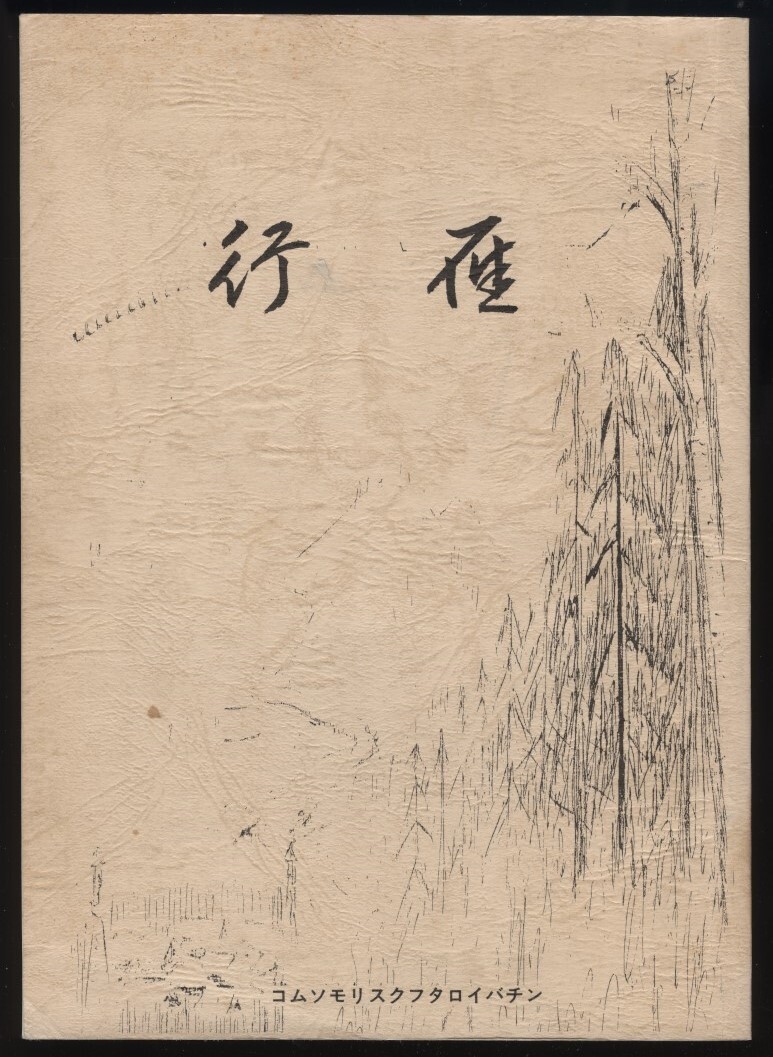 行 雁
コムソモリスクフタロイバチン